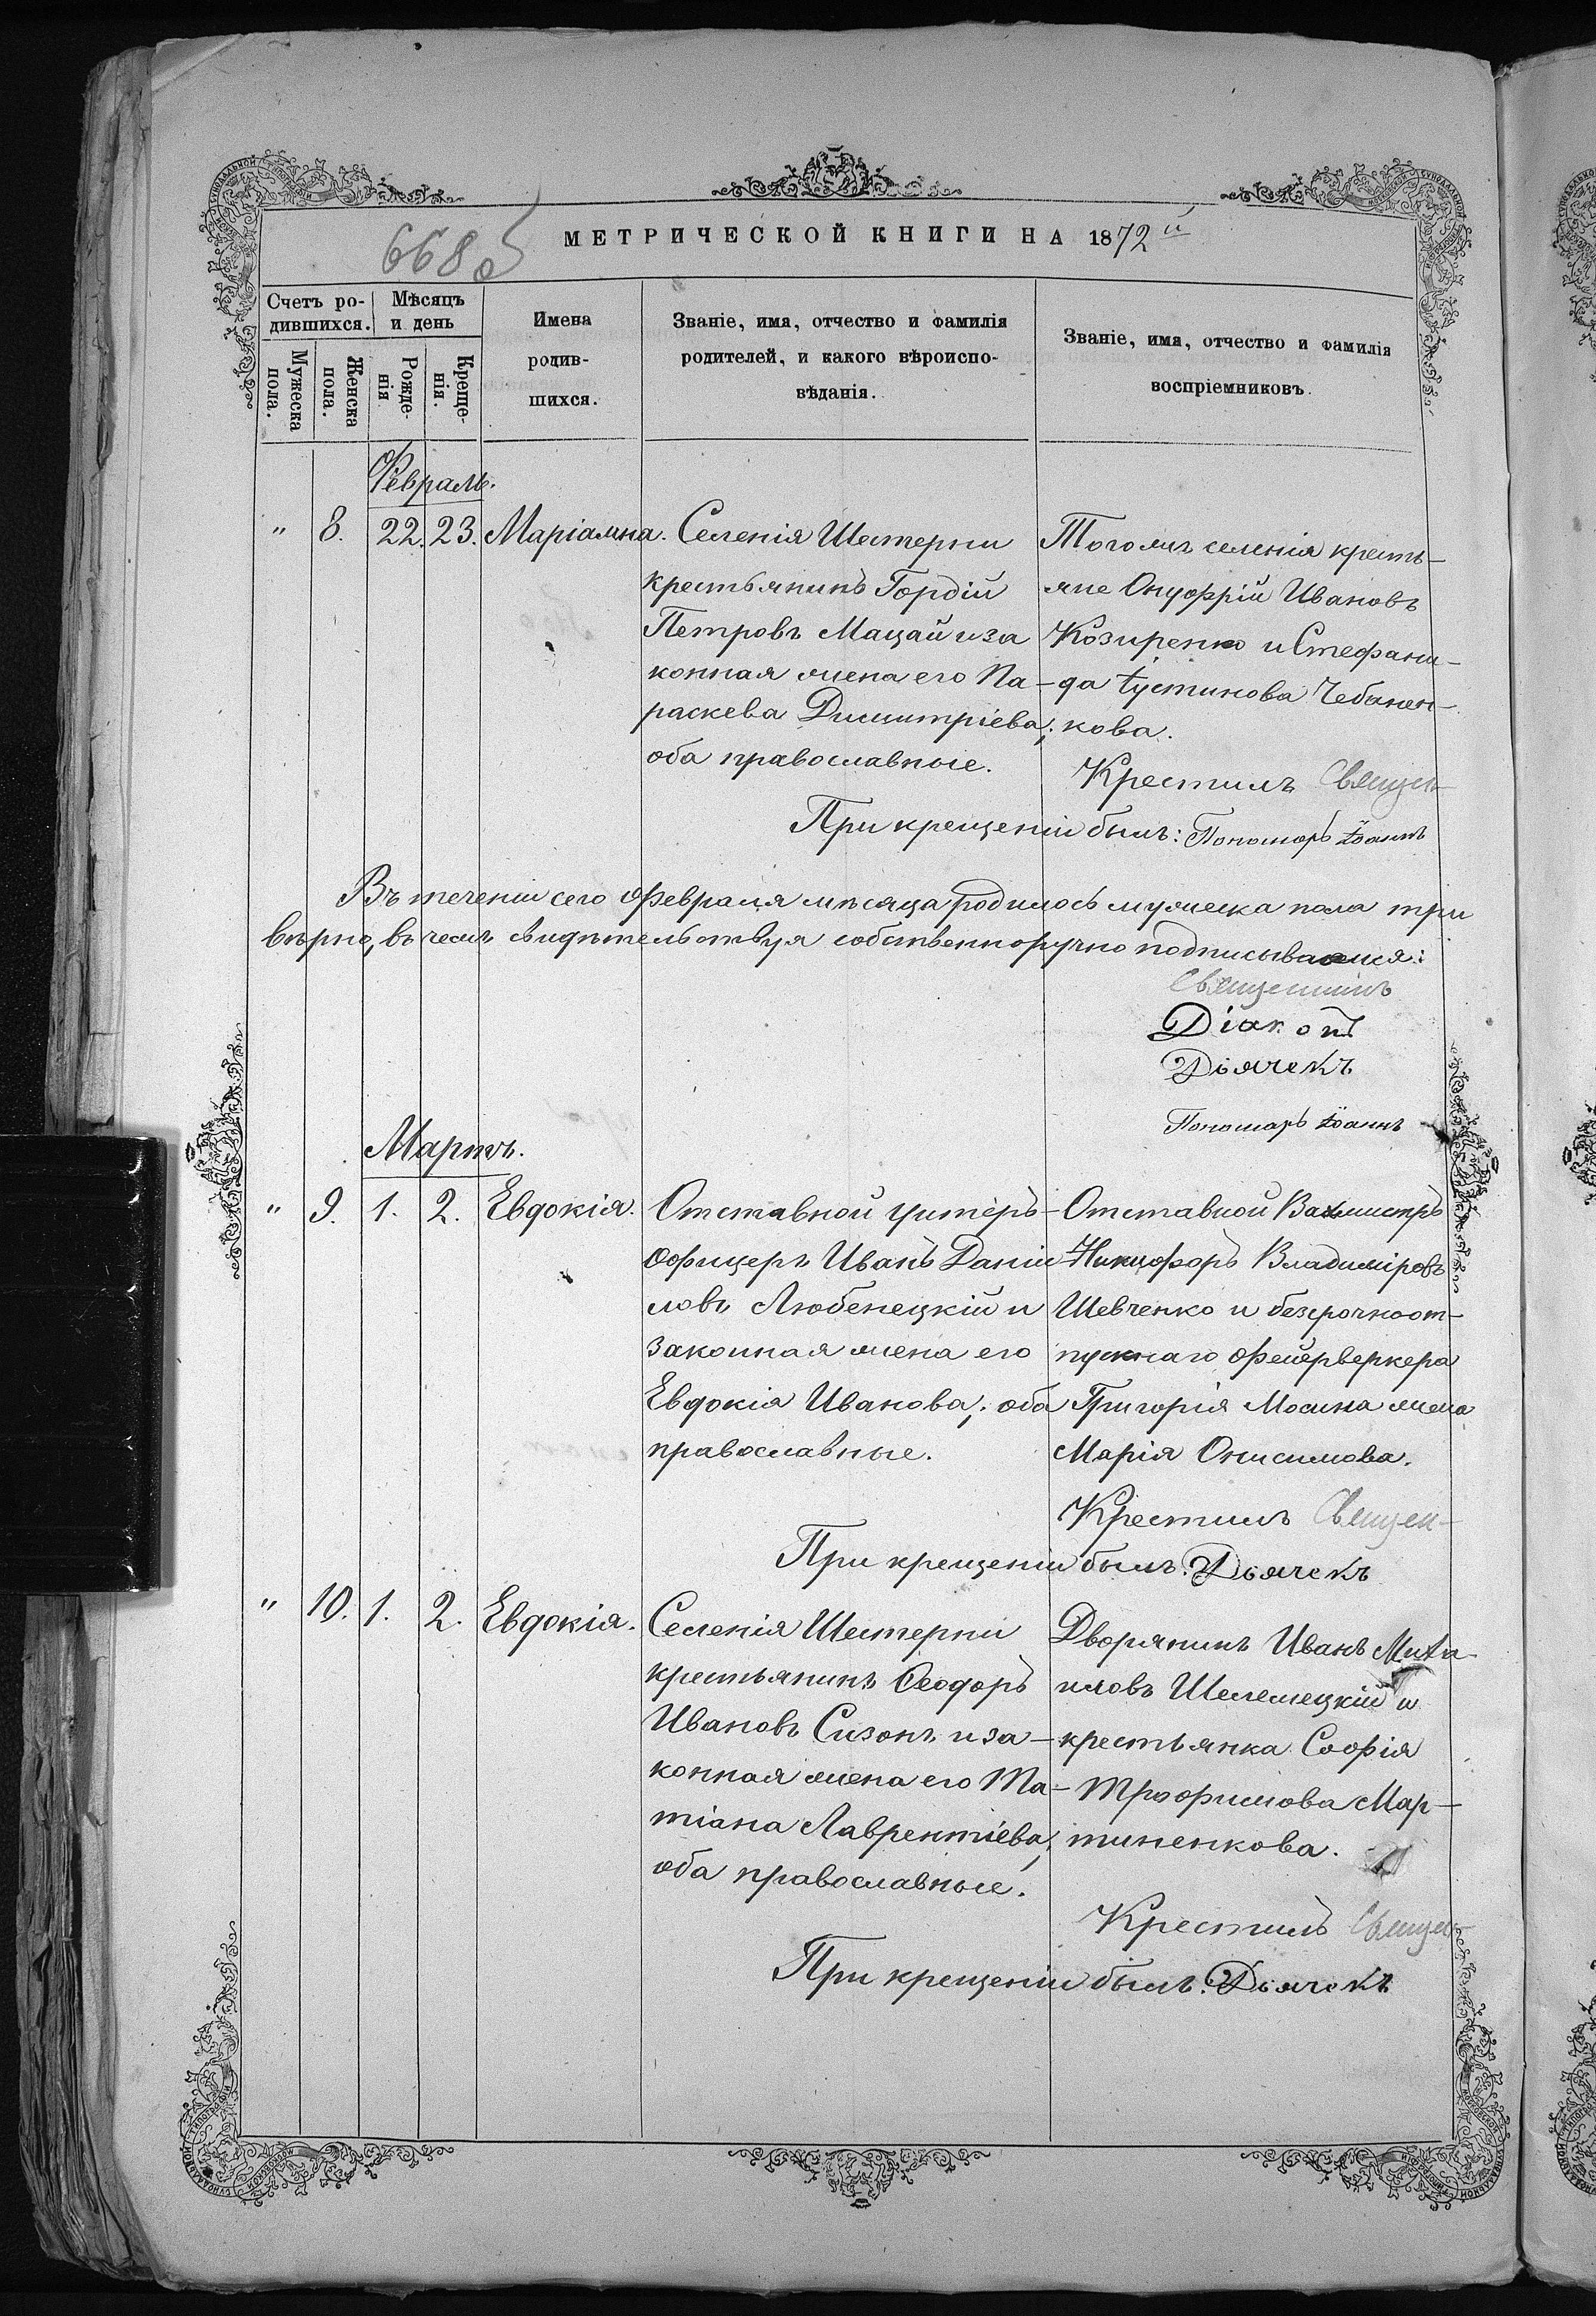 668 об
МЕТРИЧЕСКОЙ КНИГИ НА 1872й
Счетъ ро-
дившихся.
Мѣсяцъ
и день
Мужеска
пола.
Женска
пола.
Рожде-
нія
Креще-
нія.
Имена
родив-
шихся.
Званіе, имя, отчество и фамилія
родителей, и какого вѣроиспо-
вѣданія.
Званіе, имя, отчество и фамилія
воспріемниковъ.
Февраль.
" 8. 22. 23. Маріамна.
Селенія Шестерни
крестьянинъ Гордій
Петровъ Мацай и за
конная жена его Па-
раскева Димитріева;
оба православные.
Тогожъ селенія кресть-
яне Онуфрій Ивановъ
Козиренко и Стефани-
да Іустинова Чебанен-
кова.
Крестилъ Священ-
При крещеніи былъ: Пономарь Іоаннъ
Въ теченіи сего Февраля мѣсяца родилось мужеска пола три
вѣрно, въ чемъ свидѣтельствуя собственноручно подписываемся:
Священникъ
Діаконъ
Дьячекъ
Пономарь Іоаннъ
Мартъ.
" 9. 1. 2. Евдокія.
Отставной унтеръ-
офицеръ Иванъ Даніи
ловъ Любенецкій и
законная жена его
Евдокія Иванова; оба
православные.
Отставной Вахмистръ
Никифоръ Владиміровъ
Шевченко и безсрочноот-
пускнаго фейерверкера
Григорія Мосина жена
Марія Онисимова.
Крестилъ Священ-
При крещеніи былъ: Дьячекъ
" 10. 1. 2. Евдокія.
Селенія Шестерни
крестьянинъ Ѳеодоръ
Ивановъ Сизонъ и за-
конная жена его Та-
тіана Лаврентіева;
оба православные.
Дворянинъ Иванъ Миха
иловъ Шелемецкій и
крестьянка Софія
Трофимова Мар-
тиненкова.
Крестилъ Священ-
При крещеніи былъ: Дьячекъ